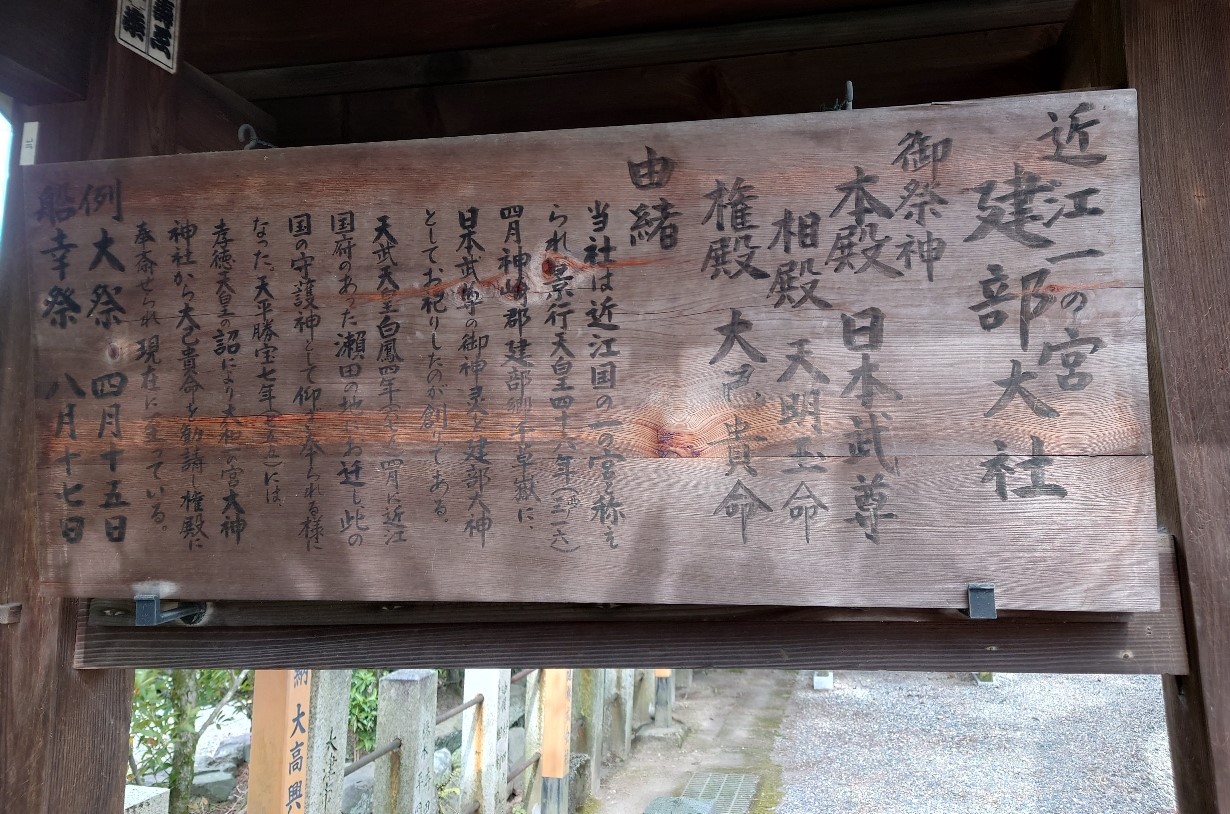 近江一の宮
建部大社
御祭神
本殿 日本武尊
相殿 天明玉命
権殿 大己貴命
由緒
当社は近江国の一の宮と称え
られ景行天皇四十六年(三一六)
四月神崎郡建部郷千草嶽に、
日本武尊の御神霊を建部大神
としてお祀りしたのが創りである。
天武天皇白鳳四年 四月に近江
国府のあった瀬田の地にお迁し此の
国の守護神として仰ぎ奉られる様に
なった。天平勝宝七年(七五五)には、
孝徳天皇の詔により大和一の宮大神
神社から大己貴命を勧請し権殿に
奉斎せられ現在に至っている。
例大祭 四月十五日
船幸祭 八月十七日
大高興